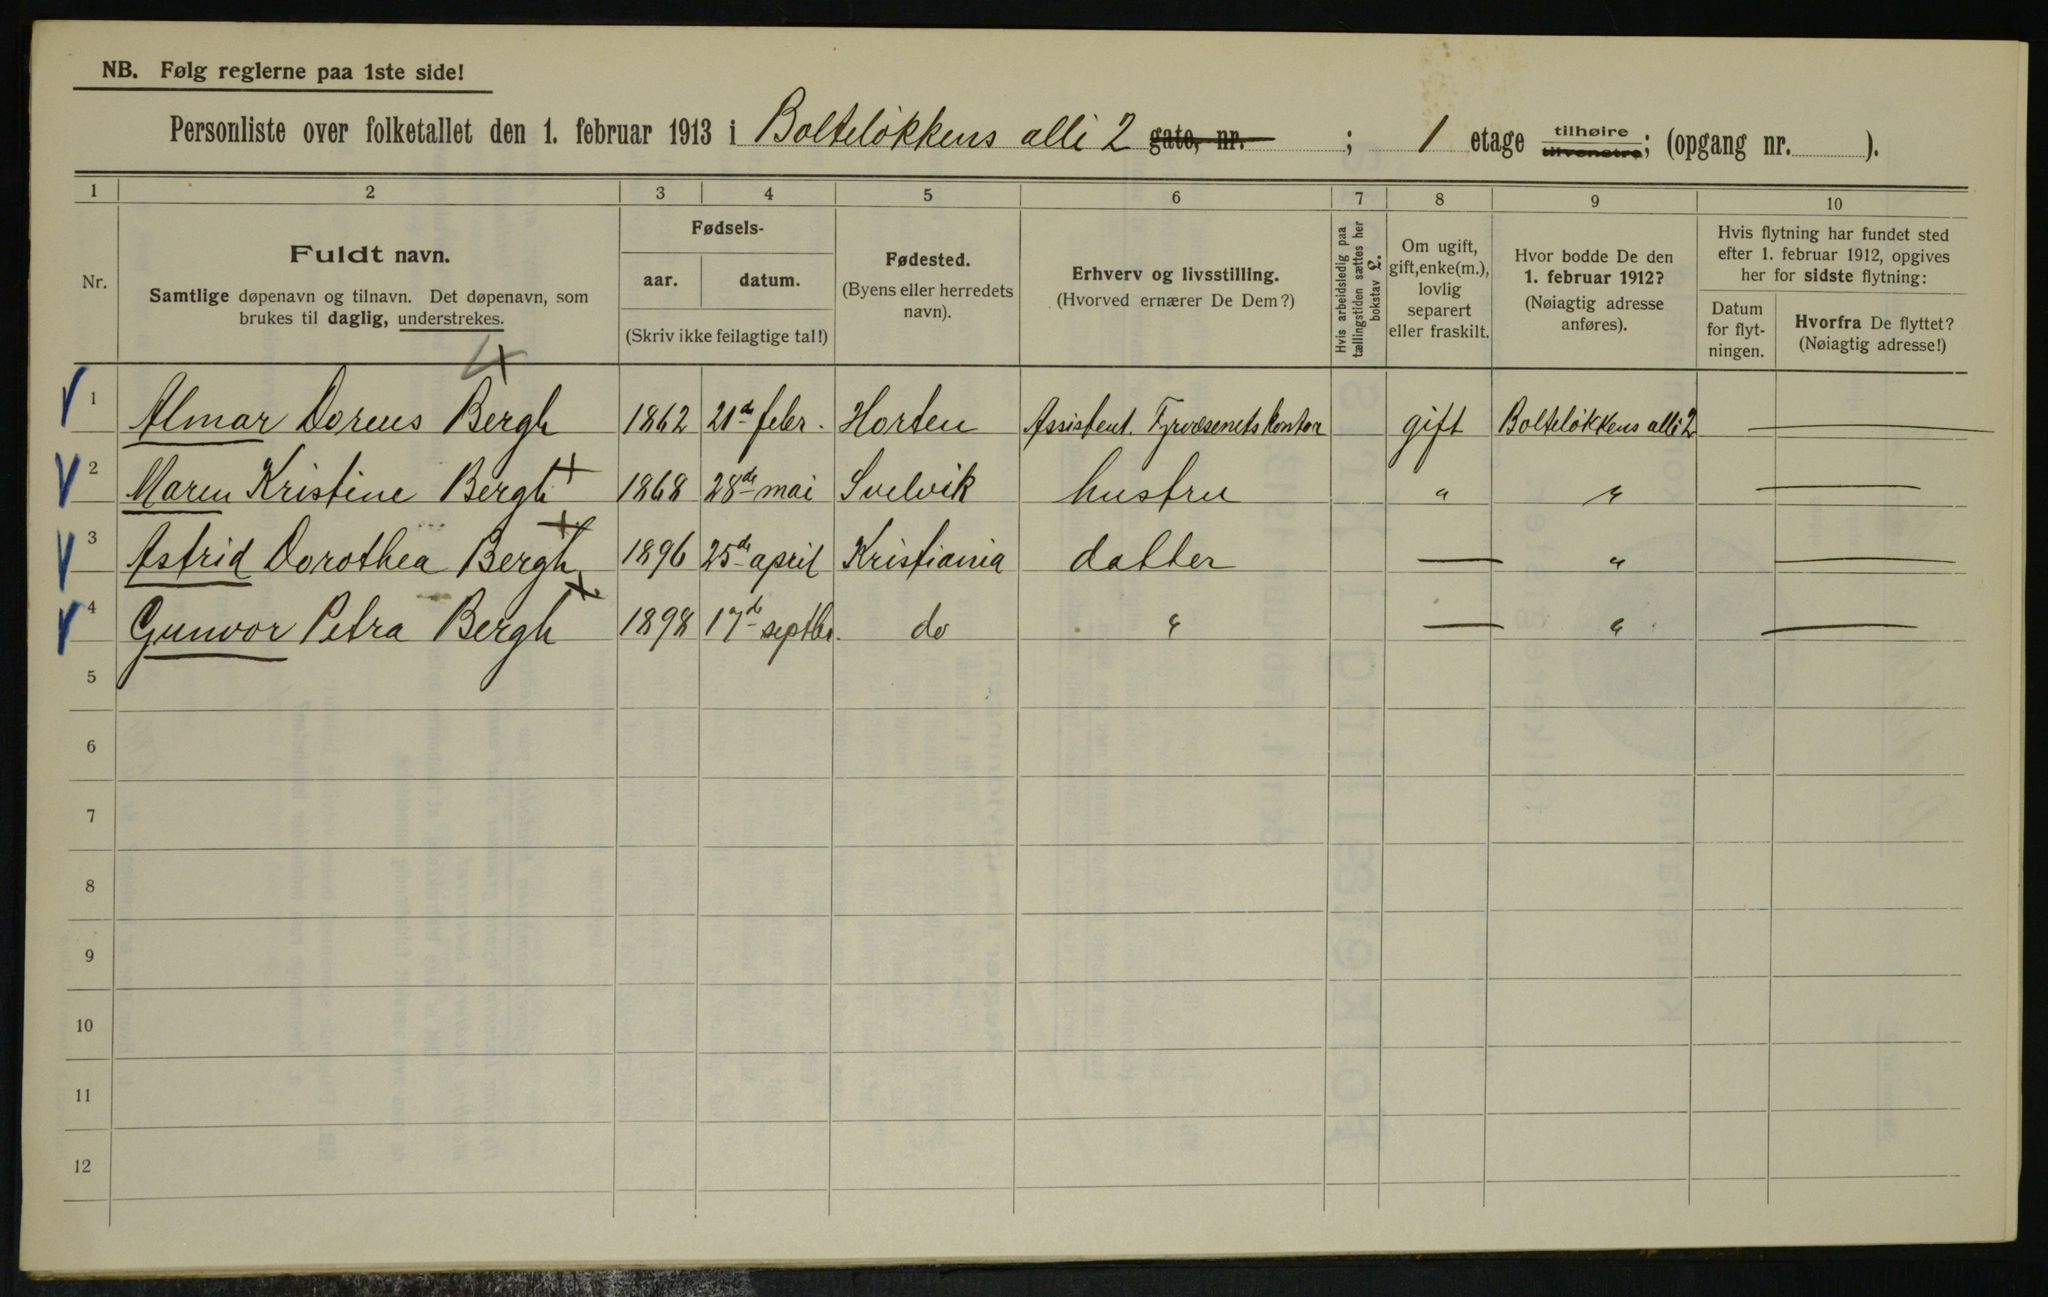 NB. Følg reglerne paa 1ste side!
Personliste over folketallet den 1. februar 1913 i Bolteløkkens alli 2 gate, nr. ; 1 etage tilhøire tilvenstre; (opgang nr. ).
1 2 3 4 5 6 7 8 9 10
Nr.
Fuldt navn.
Samtlige døpenavn og tilnavn. Det døpenavn, som
brukes til daglig, understrekes.
Fødsels-
aar. datum.
(Skriv ikke feilagtige tal!)
Fødested.
(Byens eller herredets
navn).
Erhverv og livsstilling.
(Hvorved ernærer De Dem?)
Hvis arbeidsledig paa
tællingstiden sættes her
bokstav L.
Om ugift,
gift, enke(m.),
lovlig
separert
eller fraskilt.
Hvor bodde De den
1. februar 1912?
(Nøiagtig adresse
anføres).
Hvis flytning har fundet sted
efter 1. februar 1912, opgives
her for sidste flytning:
Datum
for flyt-
ningen.
Hvorfra De flyttet?
(Nøiagtig adresse!)
4
1 Almar Doreus Bergh 1862 21de febr. Horten Assistent. Fyrvæsenets kontor gift Bolteløkkens alli 2 —
2 Maren Kristine Bergh 1868 28de mai Svelvik hustru " " —
3 Astrid Dorothea Bergh 1896 25de april Kristiania datter — " —
4 Gunvor Petra Bergh 1898 17de septbr. do " — " —
5
6
7
8
9
10
11
12